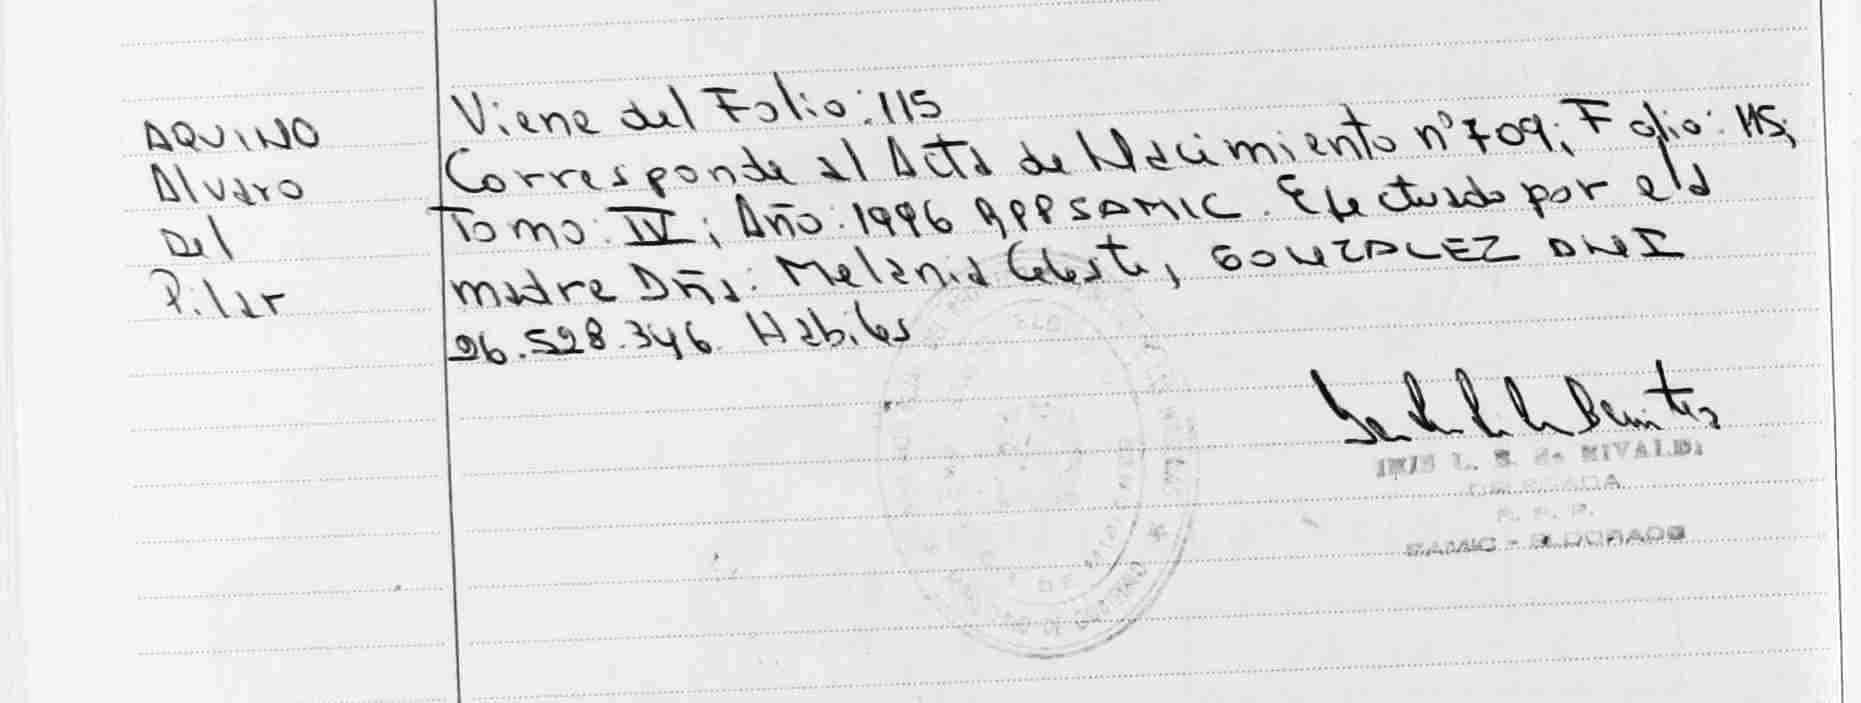 AQUINO
Alvaro
Del
Pilar
Viene del Folio: 115
Corresponde al Acta de Nacimiento nº 709; Folio: 115;
Tomo: IV; Año: 1996 RPPSAMIC. Efectuado por el/a
madre Dña: Melania Celeste, GONZALEZ DNI
26.528.346. Habiles
Benitez
IRIS L. S. de RIVALDI
DELEGADA
R. P. P.
SAMIC - ELDORADO